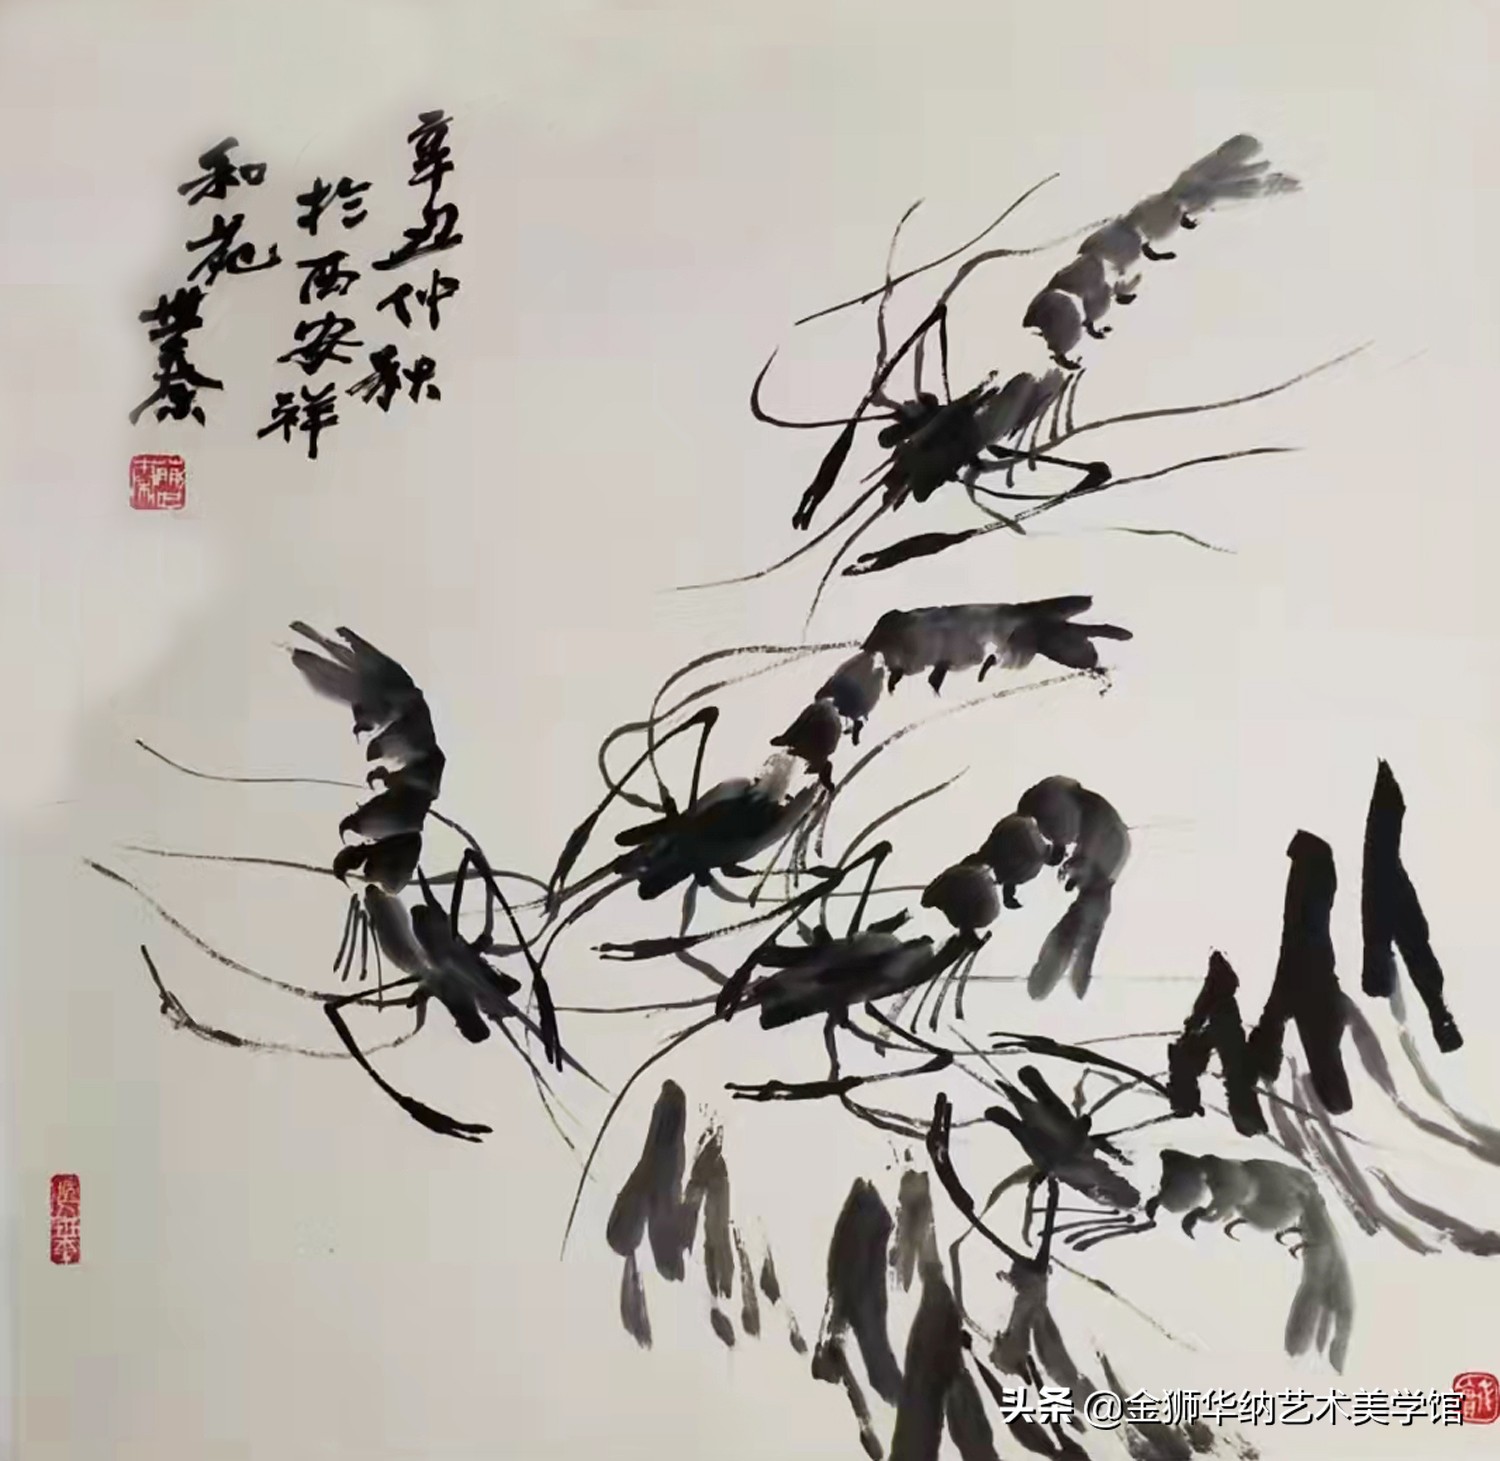 辛丑仲秋
於西安祥
和苑世秦
头条 @金狮华纳艺术美学馆